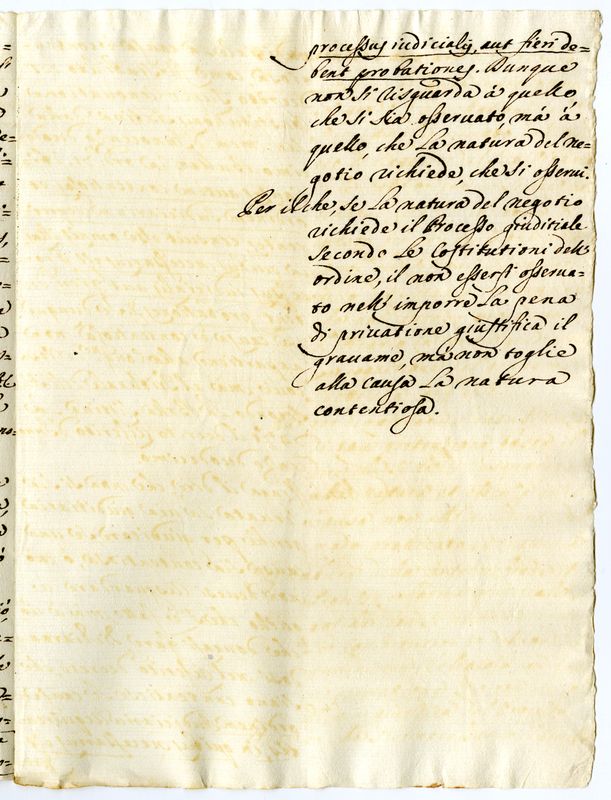 processus iudicialis, aut fieri de=
bent probationes. Dunque
non si risguarda à quello
che si sia osservato, mà à
quello, che La natura del ne=
gotio richiede, che si osservi.
Per il che, se La natura del negotio
richiede il Processo giuditiale
secondo Le Costitutioni dell'
ordine, il non essersi osserua=
to nell' imporre La pena
di priuatione giustifica il
grauame, mà non toglie
alla causa La natura
contentiosa.